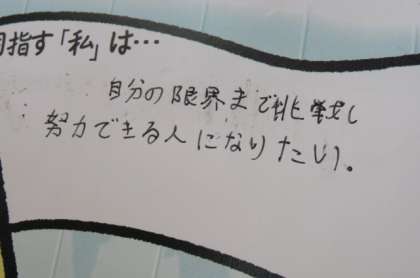 目指す「私」は…
自分の限界まで挑戦し
努力できる人になりたい。